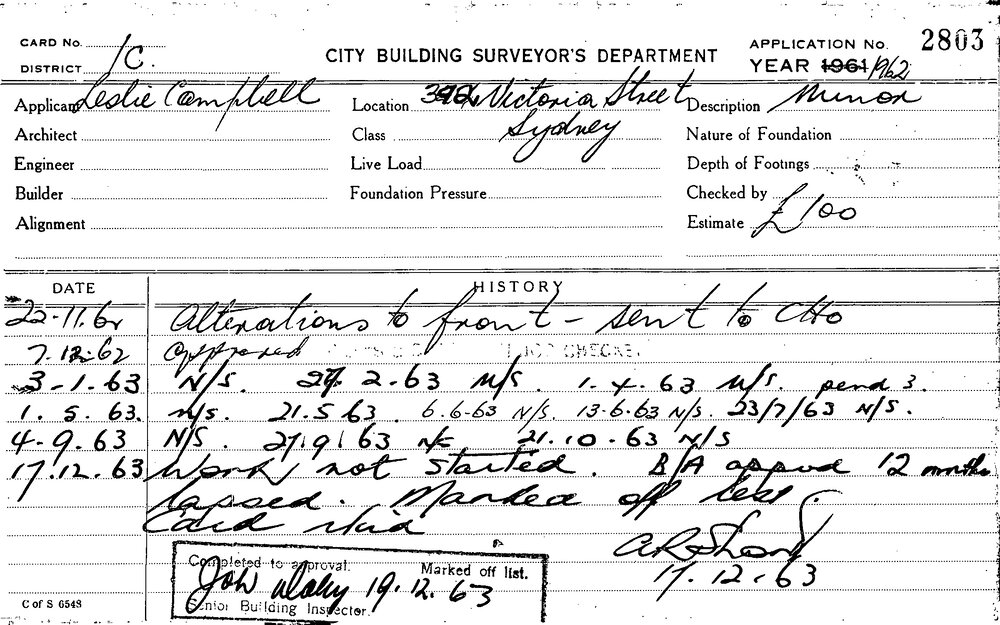 CARD No.
DISTRICT 1C.
CITY BUILDING SURVEYOR'S DEPARTMENT
APPLICATION No. 2803
YEAR 1961 1962
Applicant Leslie Campbell
Location Victoria Street
Sydney
Description Minor
Architect
Class
Nature of Foundation
Engineer
Live Load
Depth of Footings
Builder
Foundation Pressure
Checked by
Alignment
Estimate £100
DATE HISTORY
22-11-62 Alterations to front - sent to CHO
7-12-62 approved
3-1.63 N/S. 27. 2.63 N/S. 1.4.63 N/S. pend 3.
1.5.63. N/S. 21.5.63. 6.6.63 N/S. 13.6.63 N/S. 23/7/63 N/S.
4.9.63 N/S. 27.9.63 N/S 21.10.63 N/S
17.12.63 Work not started. B/A approval 12 months
lapsed. Marked off list.
Card
17.12.63
Completed to approval. Marked off list.
19.12.63
Senior Building Inspector.
C of S 6548